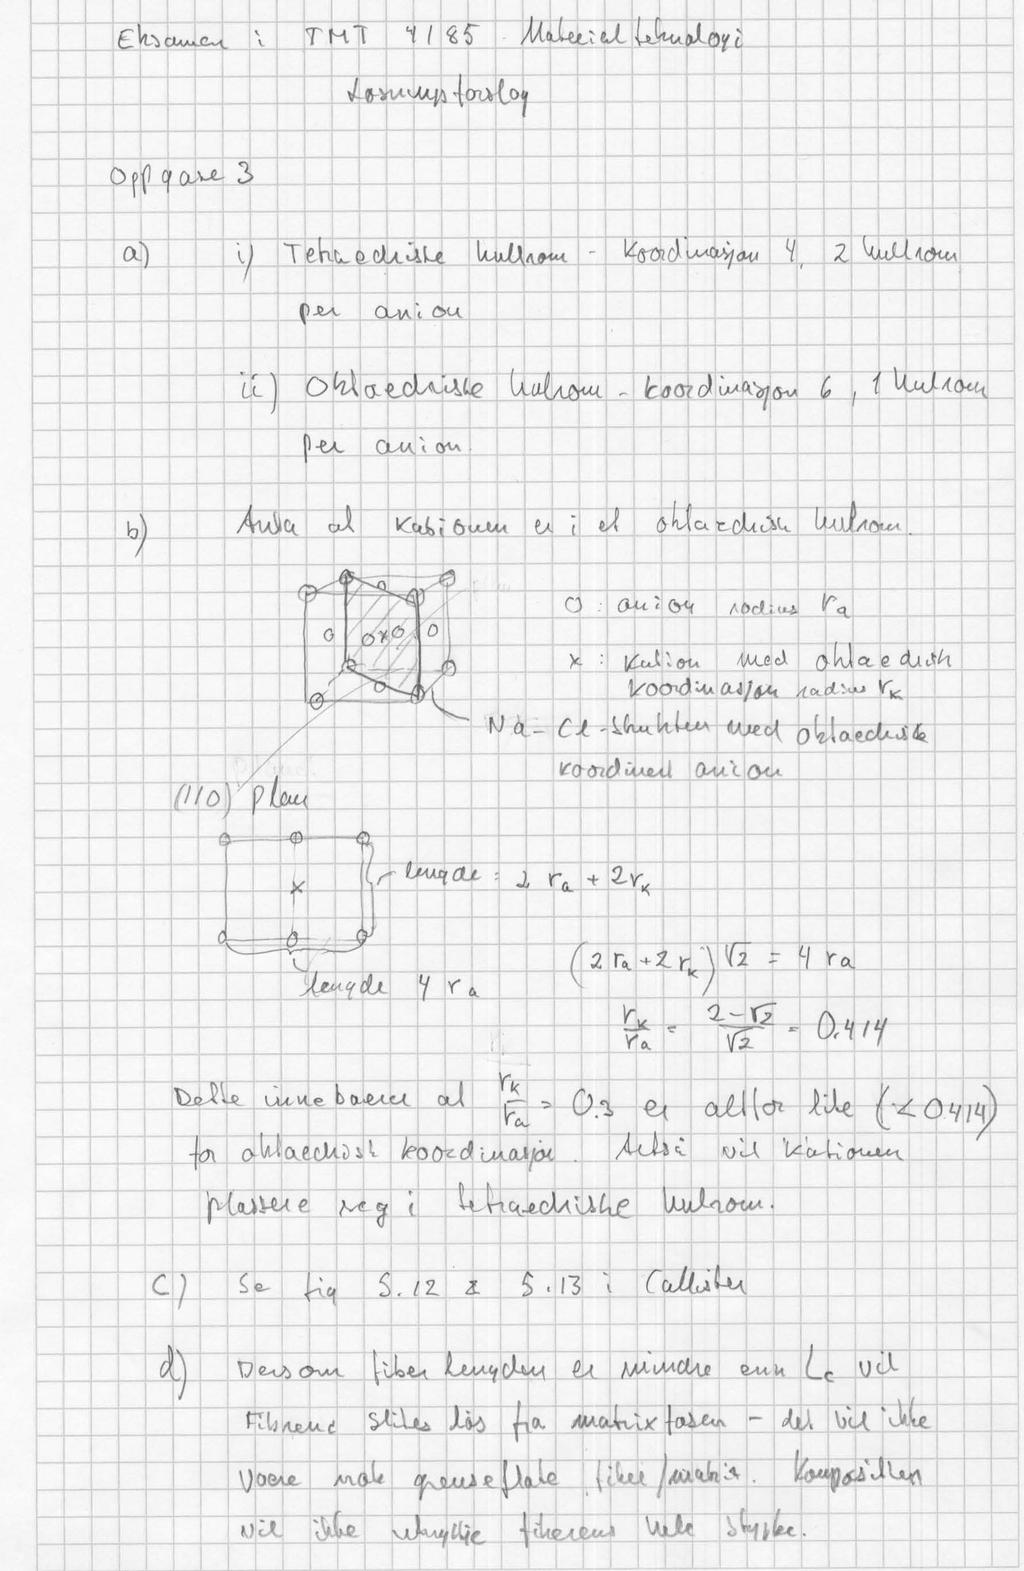 Eksamen i TMT 4185 Materialteknologi
Løsningsforslag
Oppgave 3
a) i) Tetraedriske hullrom - koordinasjon 4, 2 hullrom
per anion
ii) Oktaedriske hulrom - koordinasjon 6, 1 hulrom
per anion.
b) Anta at kationen er i et oktaedrisk hulrom.
O : anion radius ra
x : kation med oktaedrisk
koordinasjon radius rk
Na-Cl-strukturen med oktaedrisk
koordinert anion
(110) plan
lengde = 2 ra + 2rk
lengde 4 ra
(2ra + 2rk)√2 = 4 ra
rk/ra = (2-√2)/√2 = 0.414
Dette innebærer at rk/ra = 0.3 er altfor lite (<0.414)
for oktaedrisk koordinasjon. Altså vil kationen
plassere seg i tetraedriske hulrom.
c) Se fig 5.12 & 5.13 i Callister
d) Dersom fiber lengden er mindre enn Lc vil
Fibrene slites løs fra matrixfasen - det vil ikke
være nok grenseflate fiber/matrix. Kompositten
vil ikke utnytte fiberens hele styrke.